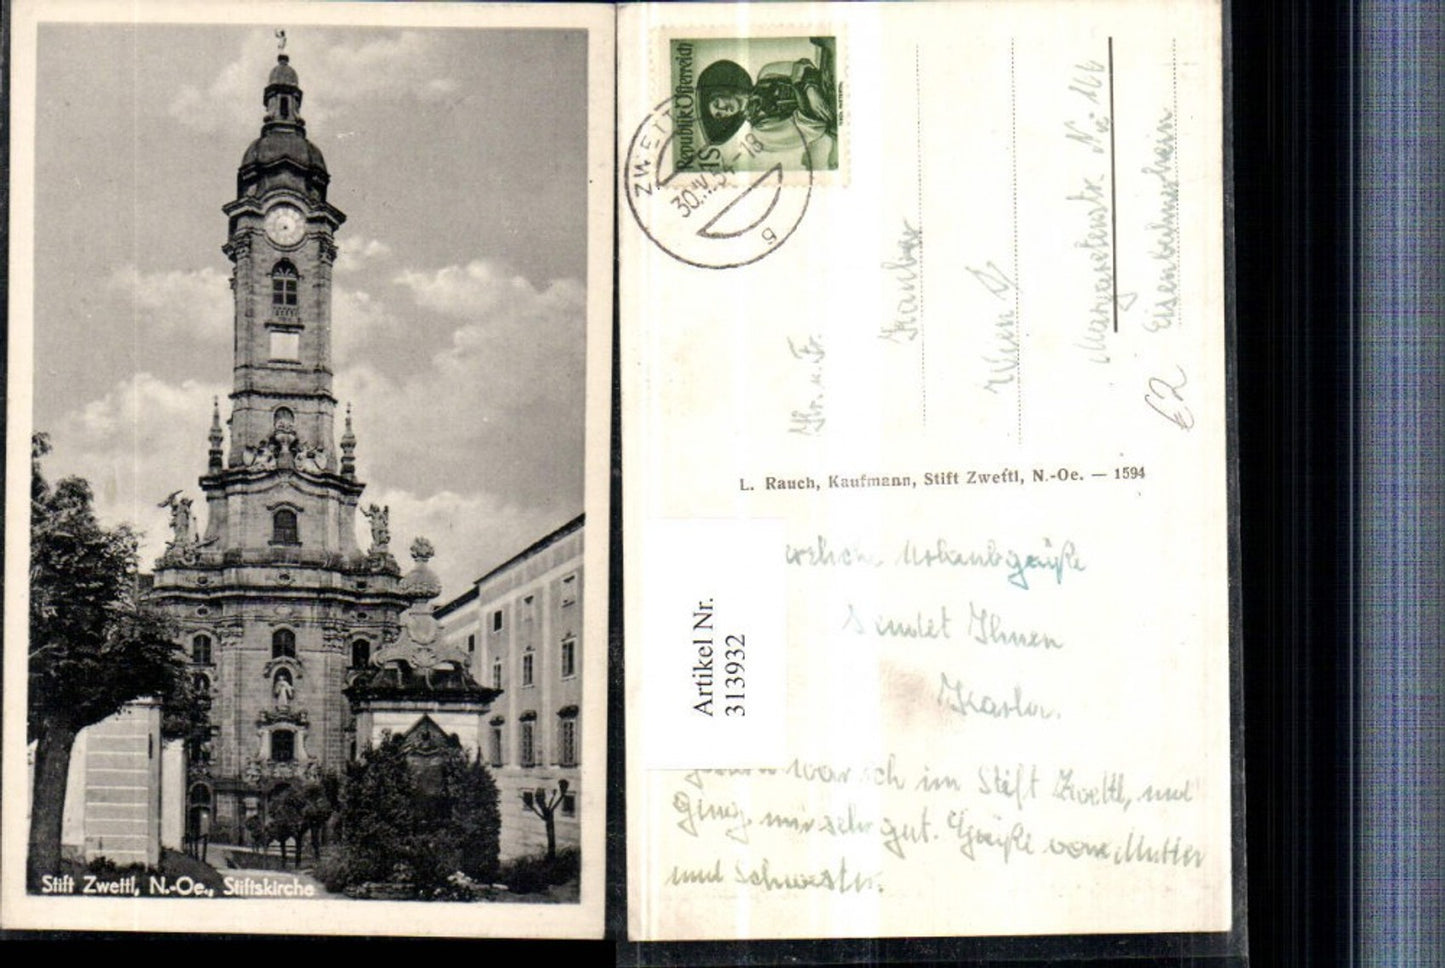 Stift Zwettl, N.-Oe., Stiftskirche
Republik Österreich
1S
ZWETT
30.V.54-18
Hr. u. Fr.
Wien V
Margaretenstr. Nr. 166
€2
L. Rauch, Kaufmann, Stift Zwettl, N.-Oe. — 1594
Artikel Nr.
313932
Sendet Ihnen
Karla.
war ich im Stift Zwettl, und
ging mir sehr gut. Grüße von Mutter
und Schwester.